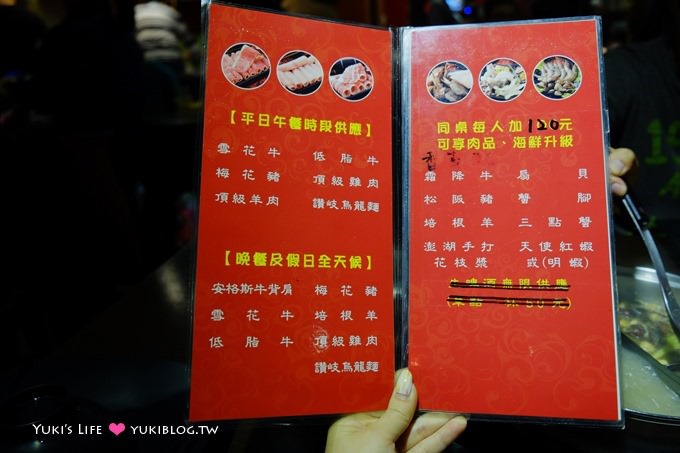 【平日午餐時段供應】
雪花牛 低脂牛
梅花豬 頂級雞肉
頂級羊肉 讚岐烏龍麵
【晚餐及假日全天候】
安格斯牛背肩 梅花豬
雪花牛 培根羊
低脂牛 頂級雞肉
讚岐烏龍麵
同桌每人加120元
可享肉品、海鮮升級
霜降牛 扇貝
松阪豬 蟹腳
培根羊 三點蟹
澎湖手打 天使紅蝦
花枝漿 或(明蝦)
啤酒無限供應
YUKI'S LIFE ♥ YUKIBLOG.TW